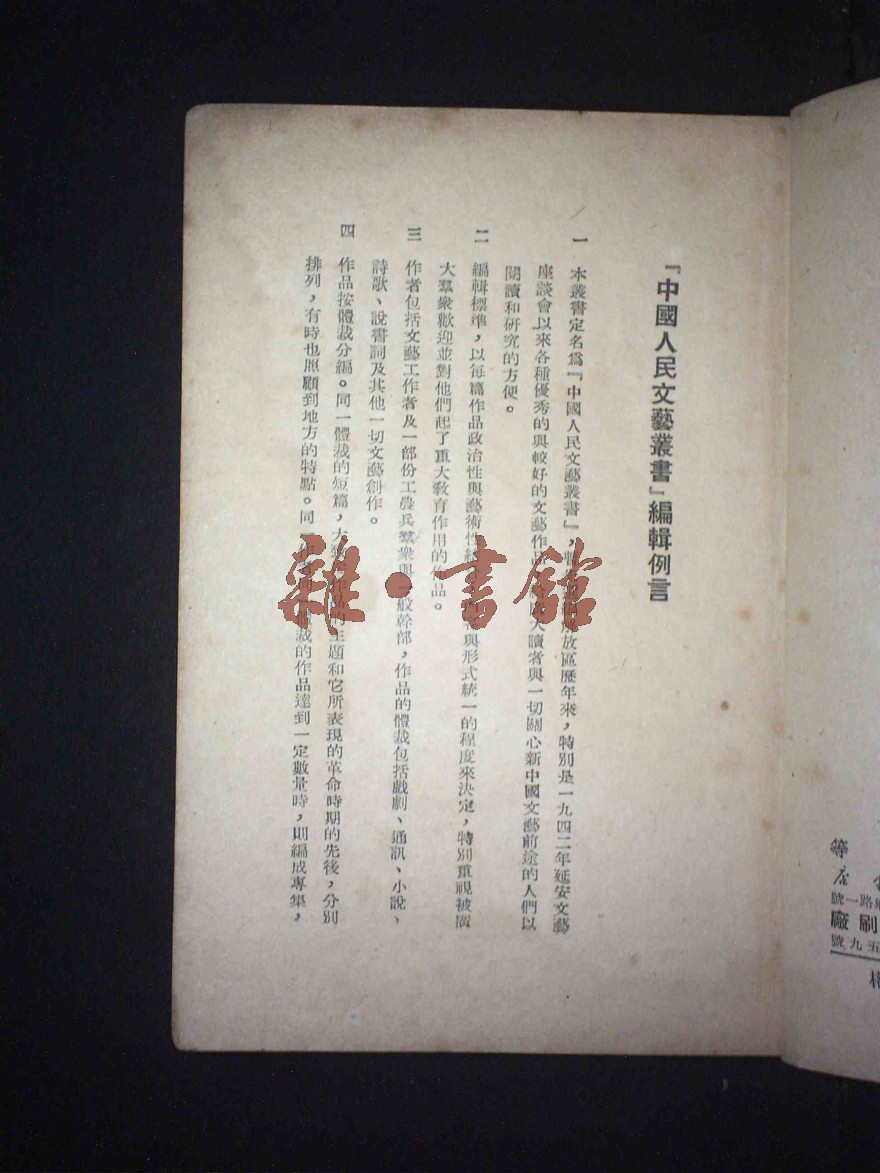 『中國人民文藝叢書』編輯例言
一　本叢書定名爲『中國人民文藝叢書』，解放區歷年來，特別是一九四二年延安文藝
座談會以來各種優秀的與較好的文藝作品大讀者與一切關心新中國文藝前途的人們以
閱讀和研究的方便。
二　編輯標準，以每篇作品政治性與藝術性與形式統一的程度來決定，特別重視被廣
大羣衆歡迎並對他們起了重大教育作用的作品。
三　作者包括文藝工作者及一部份工農兵羣衆與一般幹部，作品的體裁包括戲劇、通訊、小說、
詩歌、說書詞及其他一切文藝創作。
四　作品按體裁分編。同一體裁的短篇，大作品的主題和它所表現的革命時期的先後，分別
排列，有時也照顧到地方的特點。同一裁的作品達到一定數量時，則編成專集，
雜·書館
路一號
刷廠
五九號